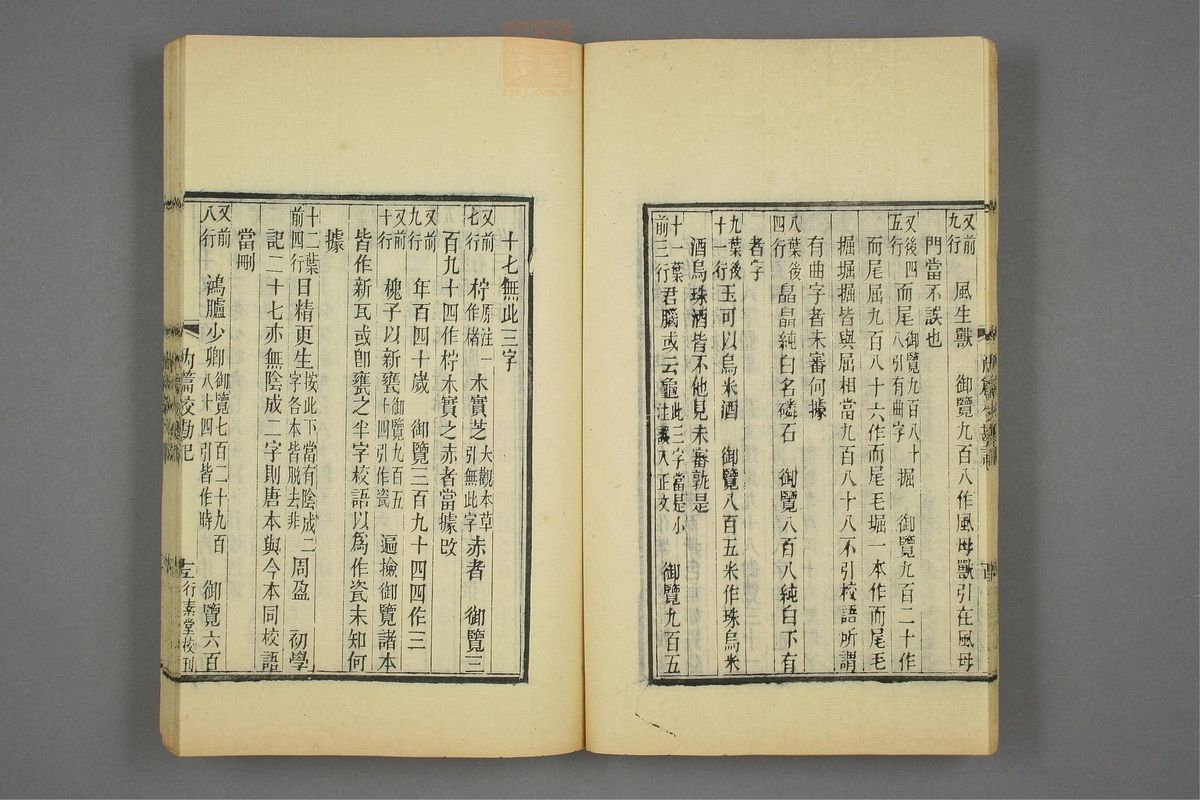 又前九行 風生獸 御覽九百八作風母獸引在風母
門當不誤也
又後四五行 而尾 御覽九百八十八引有曲字 掘 御覽九百二十作
而尾屈九百八十六作而尾毛堀一本作而尾毛
掘堀掘皆與屈相當九百八十八不引校語所謂
有曲字者未審何據
八葉後四行 晶晶純白名磷石 御覽八百八純白下有
者字
九葉後十一行 玉可以烏米酒 御覽八百五米作珠烏米
酒烏珠酒皆不他見未審孰是
十一葉前三行 君腦或云龜 此三字當是小注誤入正文 御覽九百五
十七無此三字
又前七行 柠 原注一作楮 木實芝 大觀本草引無此字 赤者 御覽三
百九十四作柠木實之赤者當據改
又前九行 年百四十歲 御覽三百九十四四作三
又前十行 槐子以新甕 御覽九百五十四引作瓷 遍撿御覽諸本
皆作新瓦或卽甕之半字校語以爲作瓷未知何
據
十二葉前四行 日精更生 按此下當有陰成二字各本皆脫去非 周盈 初學
記二十七亦無陰成二字則唐本與今本同校語
當刪
又前八行 鴻臚少卿 御覽七百二十九百八十四引皆作時 御覽六百
內篇校勘記
左行素堂校刊